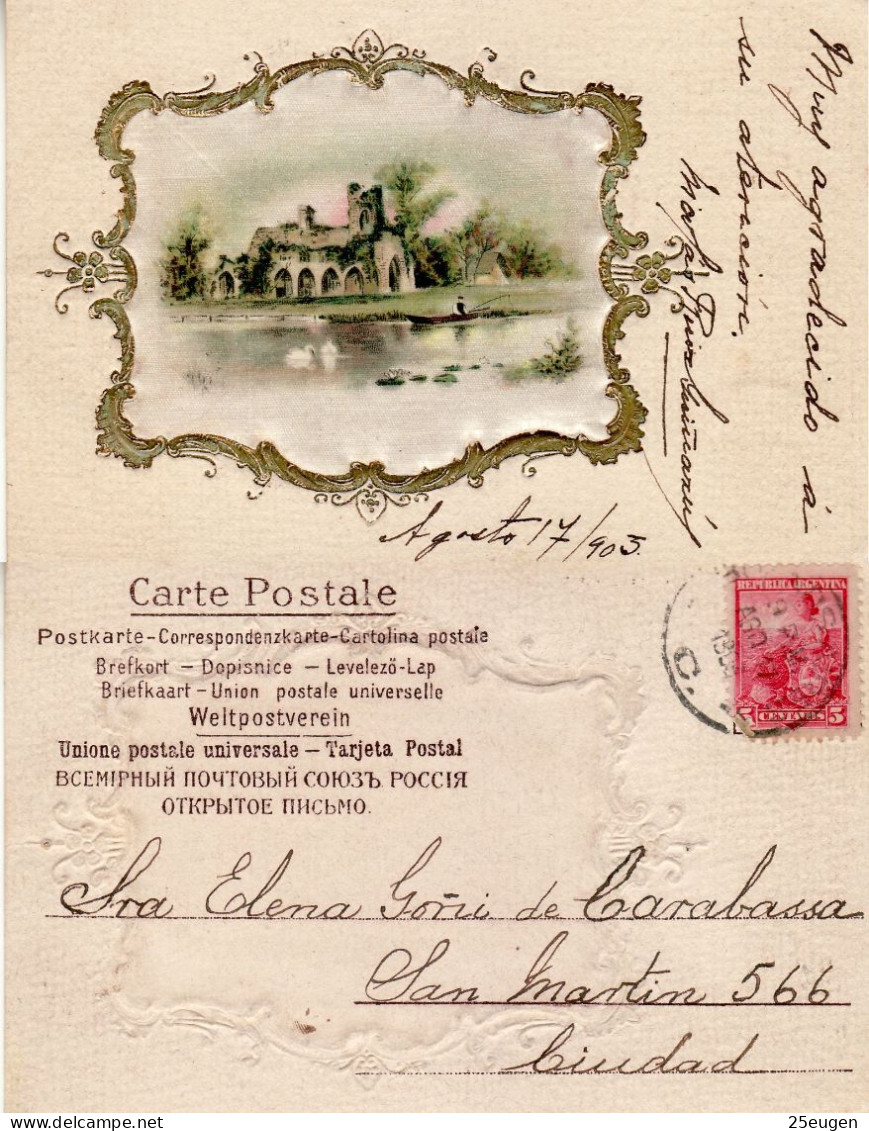 Muy agradecido á
su atención.
Agosto 17/903
Carte Postale
Postkarte-Correspondenzkarte-Cartolina postale
Brefkort — Dopisnice — Levelező-Lap
Briefkaart - Union postale universelle
Weltpostverein
Unione postale universale — Tarjeta Postal
ВСЕМІРНЫЙ ПОЧТОВЫЙ СОЮЗЪ. РОССІЯ
ОТКРЫТОЕ ПИСЬМО.
REPUBLICA ARGENTINA
5 CENTAVOS 5
Sra Elena Goñi de Carabassa
San Martin 566
Ciudad
25eugen